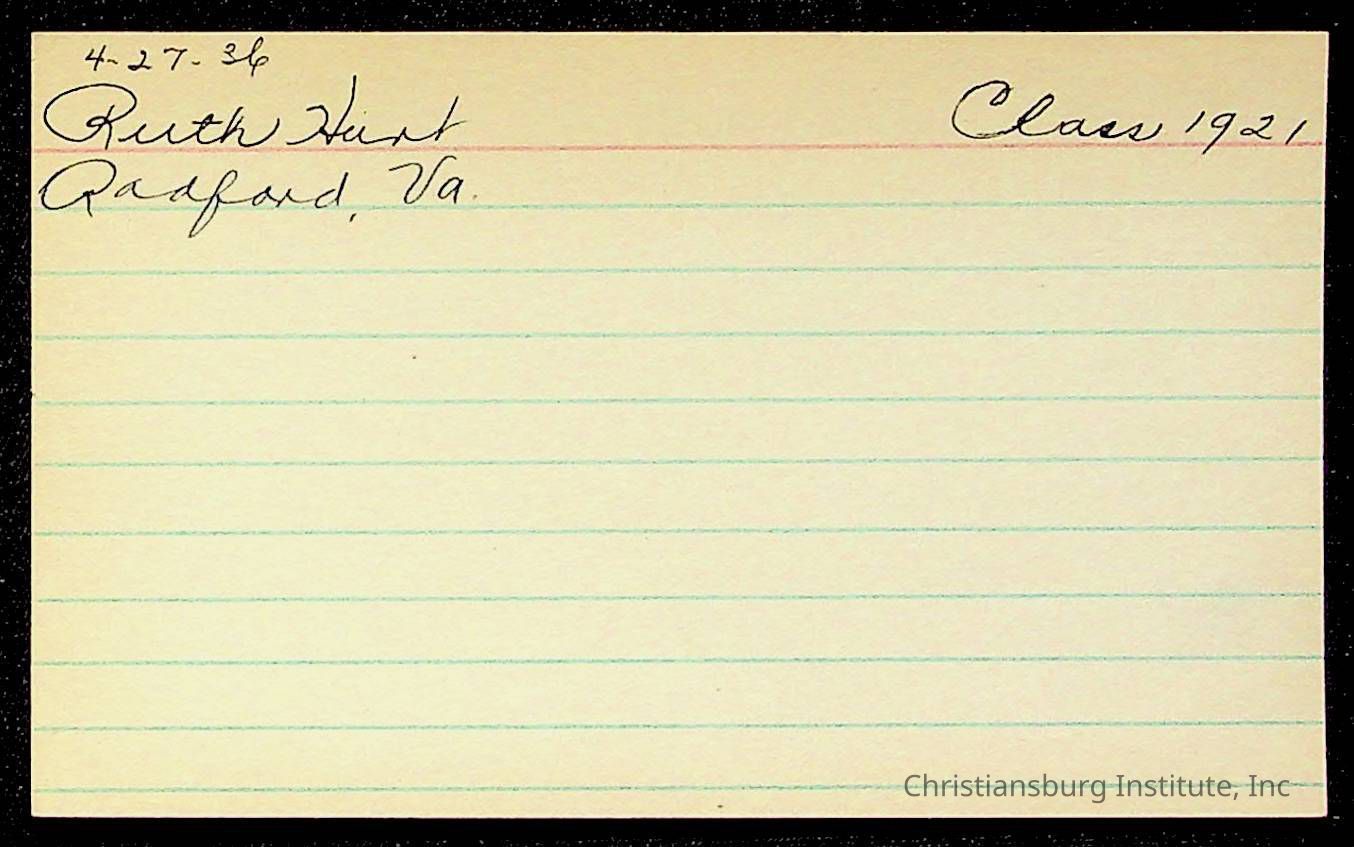 4-27-36
Ruth Hurt Class 1921
Radford, Va.
Christiansburg Institute, Inc